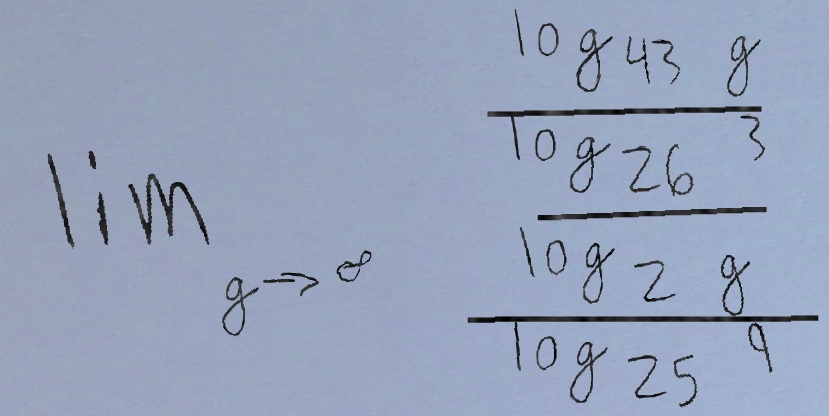 lim g→∞
log 43 g
log 26 3
log 2 g
log 25 9